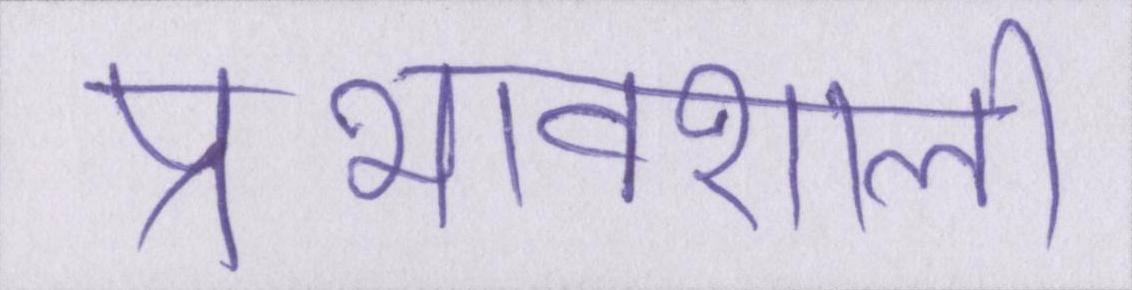 प्रभावशाली